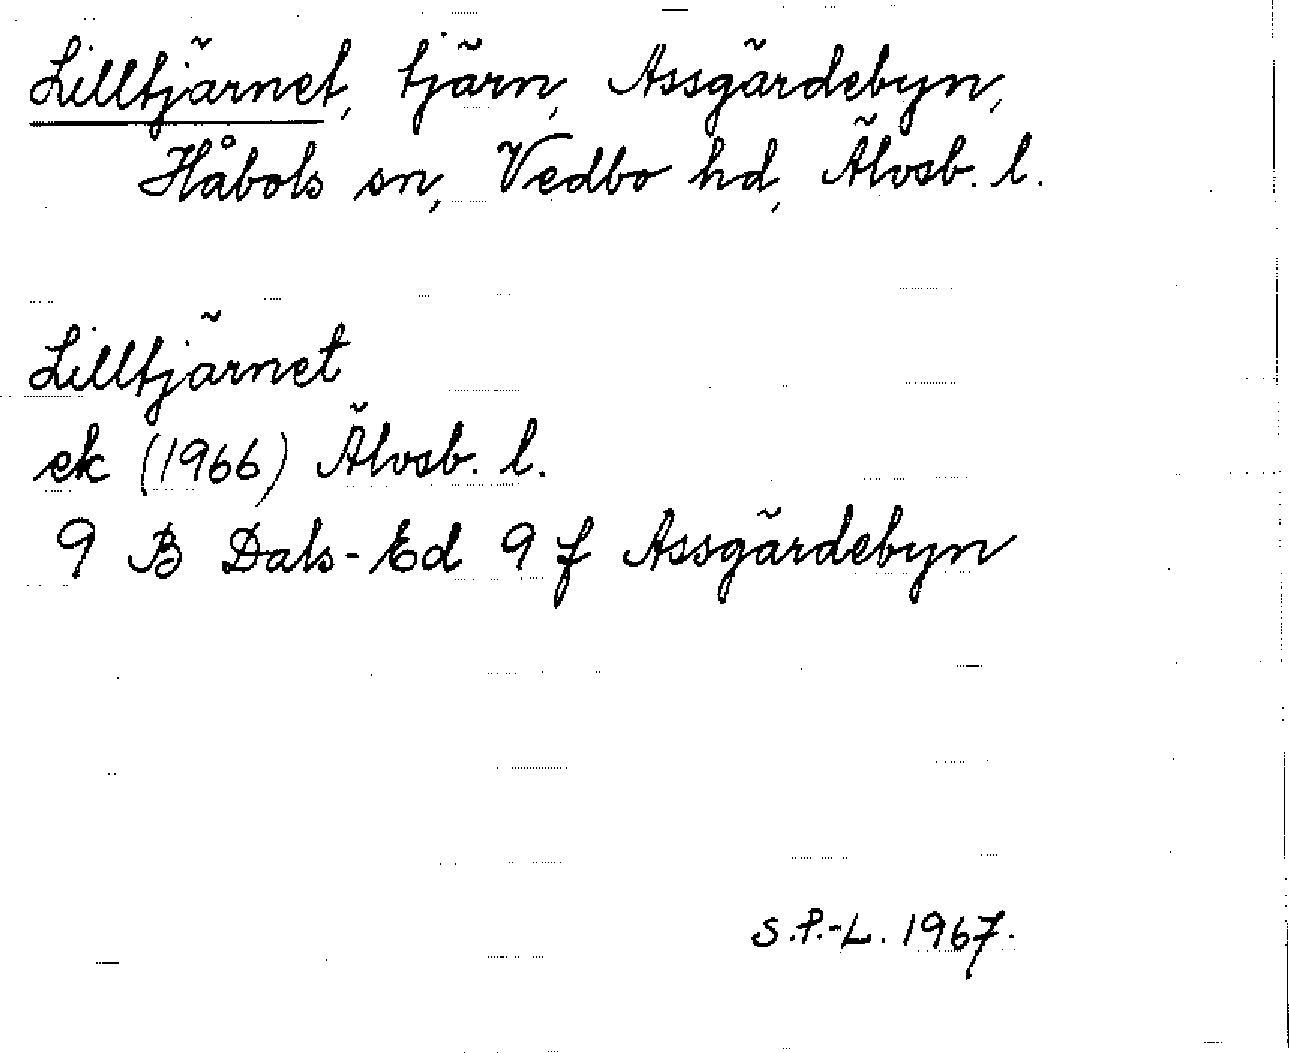 Lilltjärnet, tjärn, Assgärdebyn,
Håbols sn, Vedbo hd, Älvsb. l.
Lilltjärnet
ek (1966) Älvsb. l.
9 B Dals-Ed 9 f Assgärdebyn
S.P.-L. 1967.